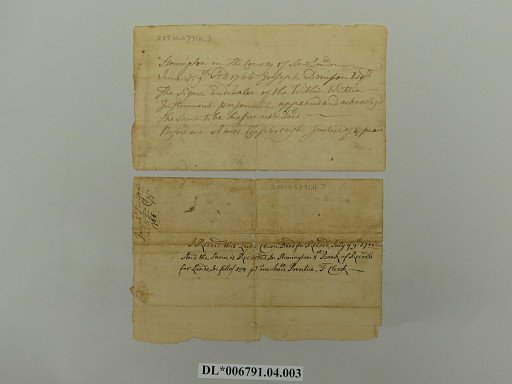 Stonington in the County of New London
June 9th AD 1766 Joseph Denison Esqr
The signer and sealer of the Within Written
Instrument personally appeared and acknowledged
the same to be his free act & deed
Before me Amos Chesebrough Justice of ye peace
I Received this Deed for Record July
And the Same is Recorded In Stonington 8 Book of Records
for Lands In folio 158 pr me John Prentice T Clerk
DL*006791.04.003